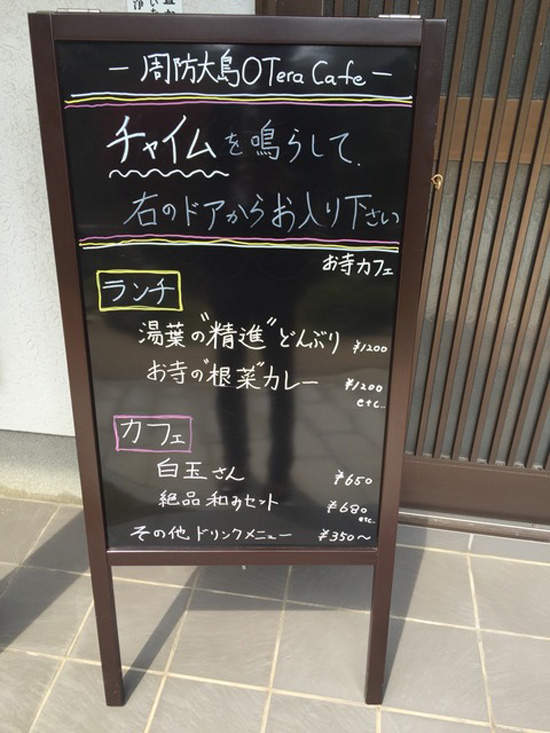 — 周防大島OTera Cafe —
チャイムを鳴らして
右のドアからお入り下さい
お寺カフェ
ランチ
湯葉の"精進"どんぶり ¥1200
お寺の"根菜"カレー ¥1200
etc..
カフェ
白玉さん ¥650
絶品 和みセット ¥680
etc..
その他 ドリンクメニュー ¥350〜